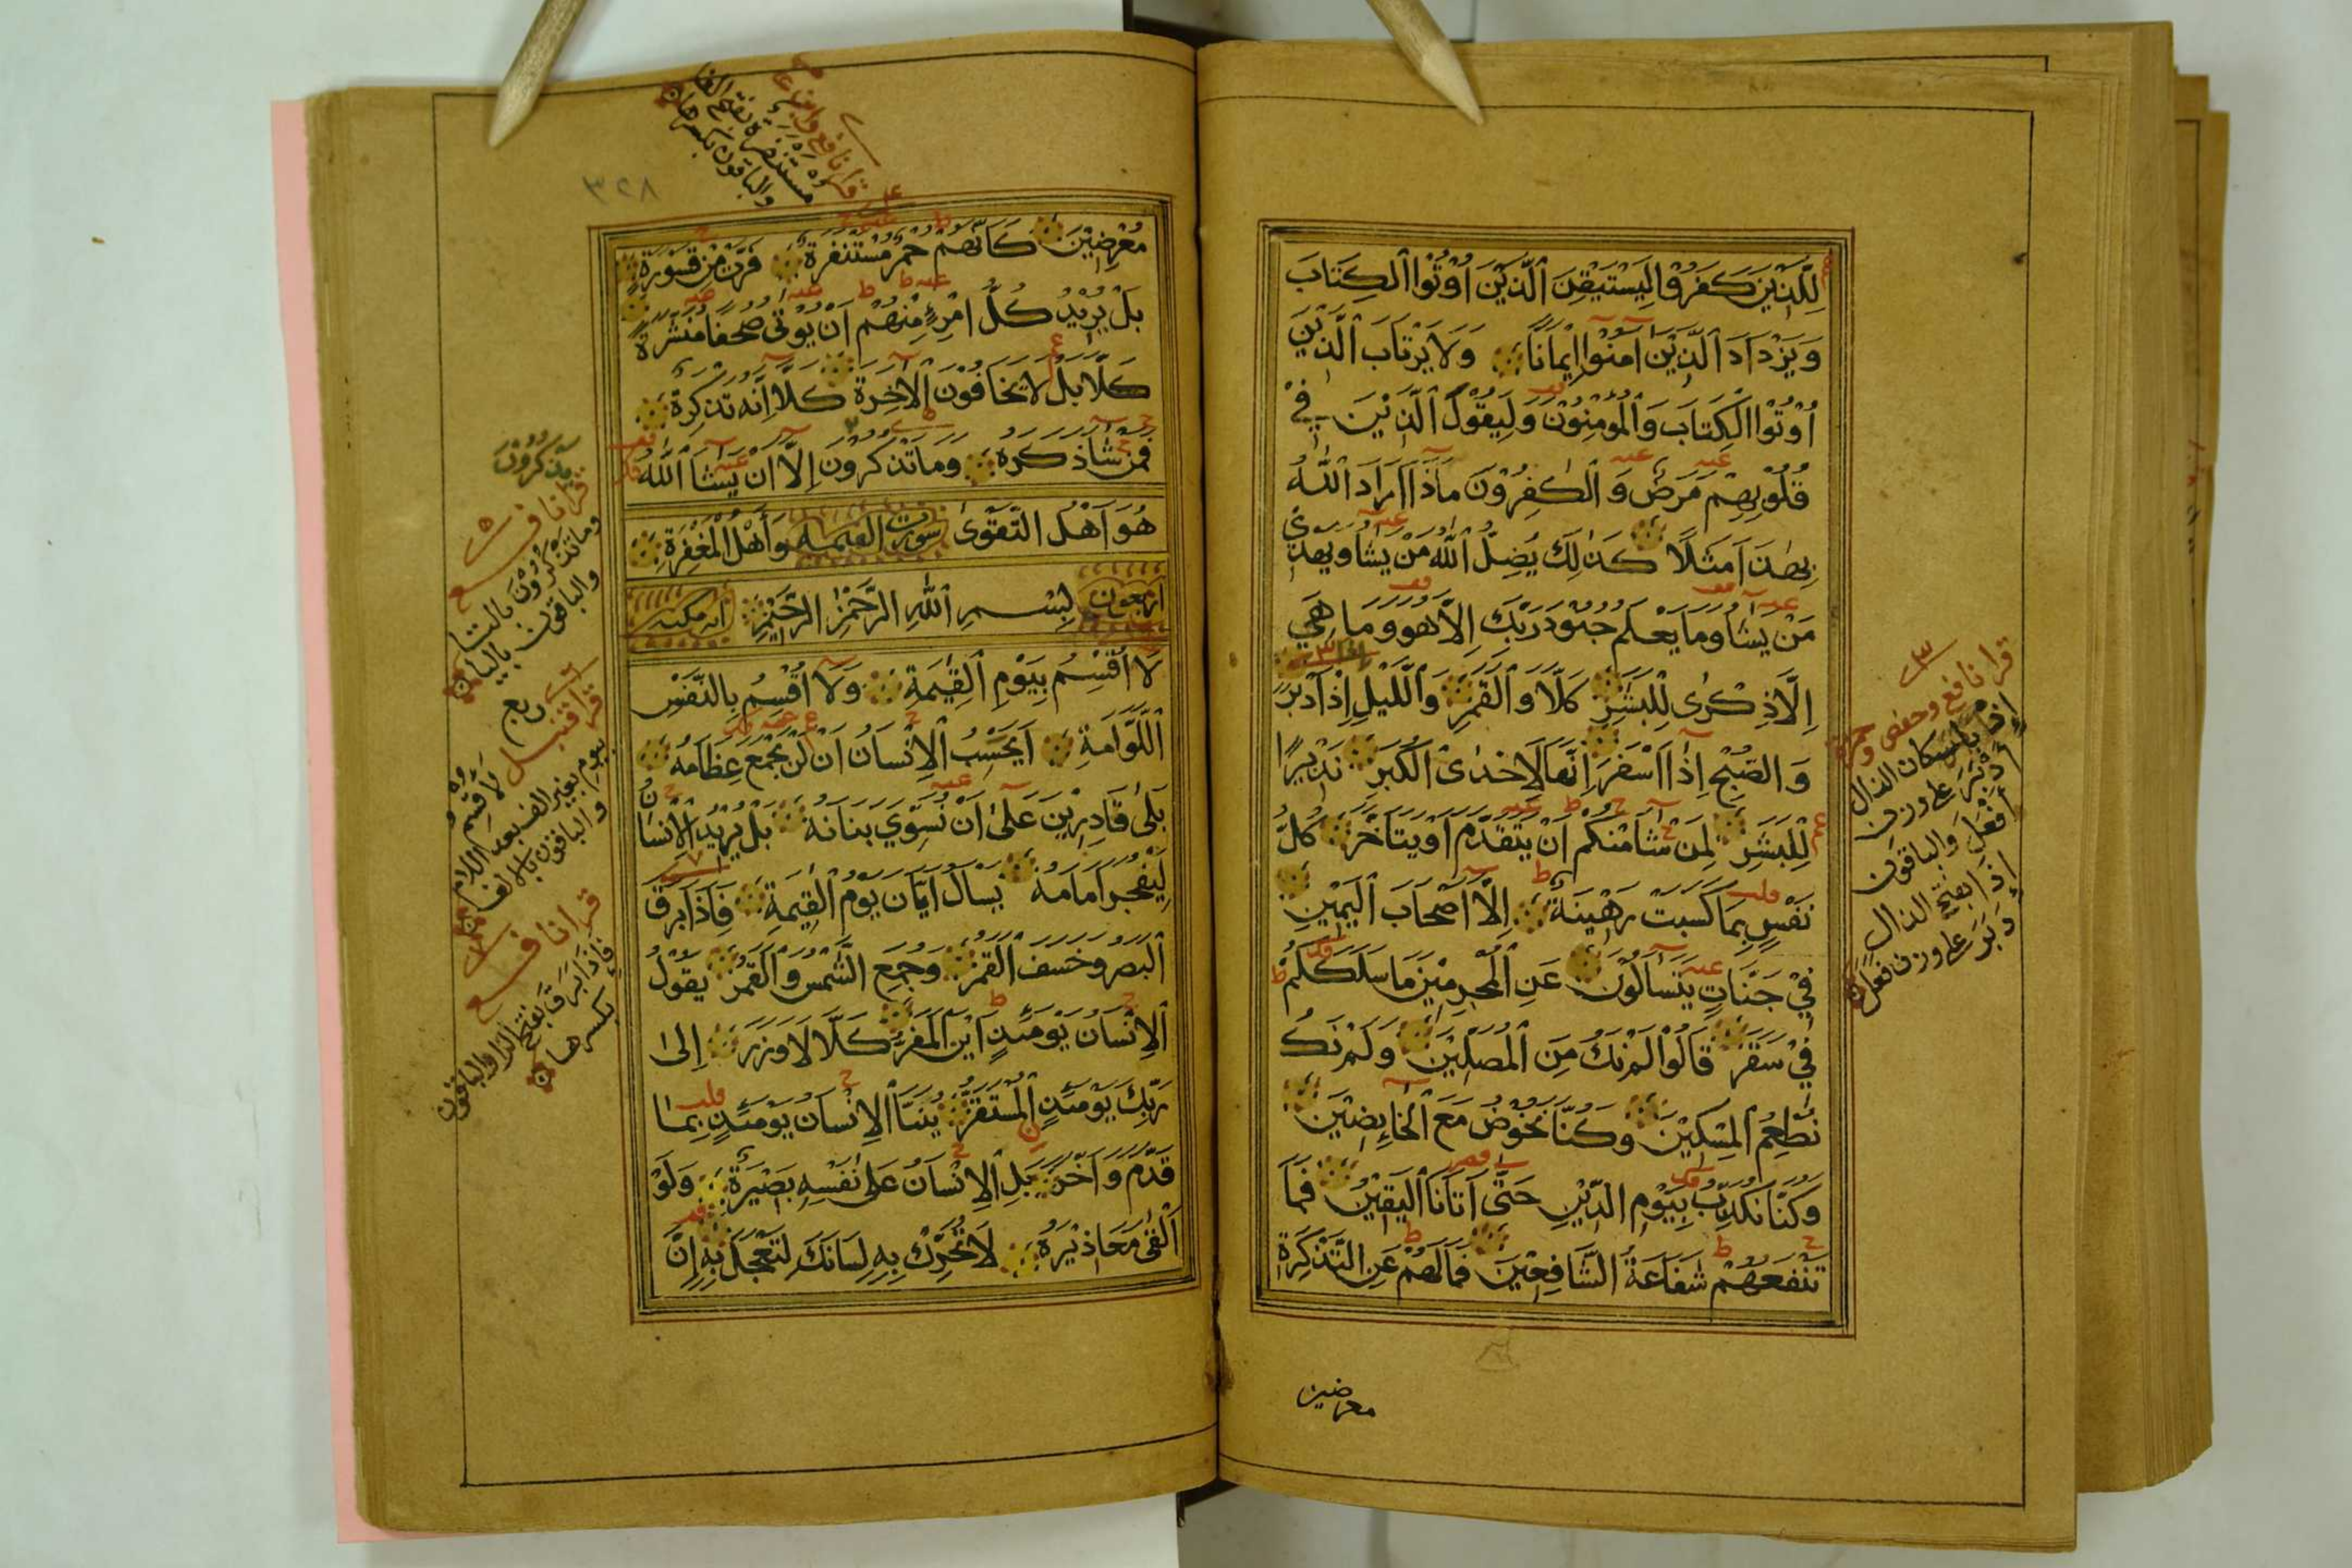 لِلَّذِيْنَ كَفَرُوْا لِيَسْتَيْقِنَ الَّذِيْنَ اُوْتُوْا الْكِتَابَ
وَيَزْدَادَ الَّذِيْنَ آمَنُوْا اِيْمَانًا وَلَا يَرْتَابَ الَّذِيْنَ
اُوْتُوْا الْكِتَابَ وَالْمُؤْمِنُوْنَ وَلِيَقُوْلَ الَّذِيْنَ فِيْ
قُلُوْبِهِمْ مَرَضٌ وَالْكٰفِرُوْنَ مَاذَا اَرَادَ اللّٰهُ
بِهٰذَا مَثَلًا كَذٰلِكَ يُضِلُّ اللّٰهُ مَنْ يَشَا وَيَهْدِيْ
مَنْ يَشَا وَمَا يَعْلَمُ جُنُوْدَ رَبِّكَ اِلَّا هُوَ وَمَا هِيَ
اِلَّا ذِكْرٰى لِلْبَشَرِ كَلَّا وَالْقَمَرِ وَالَّيْلِ اِذْ اَدْبَرَ
وَالصُّبْحِ اِذَا اَسْفَرَ اِنَّهَا لَاِحْدَى الْكُبَرِ نَذِيْرًا
لِلْبَشَرِ لِمَنْ شَا مِنْكُمْ اَنْ يَتَقَدَّمَ اَوْ يَتَاَخَّرَ كُلُّ
نَفْسٍ بِمَا كَسَبَتْ رَهِيْنَةٌ اِلَّا اَصْحَابَ الْيَمِيْنِ
فِيْ جَنَّاتٍ يَتَسَآلُوْنَ عَنِ الْمُجْرِمِيْنَ مَا سَلَكَكُمْ
فِيْ سَقَرَ قَالُوْا لَمْ نَكُ مِنَ الْمُصَلِّيْنَ وَلَمْ نَكُ
نُطْعِمُ الْمِسْكِيْنَ وَكُنَّا نَخُوْضُ مَعَ الْخَائِضِيْنَ
وَكُنَّا نُكَذِّبُ بِيَوْمِ الدِّيْنِ حَتّٰى اَتَانَا الْيَقِيْنُ فَمَا
تَنْفَعُهُمْ شَفَاعَةُ الشَّافِعِيْنَ فَمَا لَهُمْ عَنِ التَّذْكِرَةِ
معرضين
قرا نافع وحفص وحمزة
إذْ باسكان الذال
أَدْبَرَ على وزن
أفعل والباقون
إذَا بفتح الذال
دَبَرَ على وزن فعل
٣٢٨
مستنفرة بفتح الفا
والباقون بكسرها
مُعْرِضِيْنَ كَاَنَّهُمْ حُمُرٌ مُسْتَنْفِرَةٌ فَرَّتْ مِنْ قَسْوَرَةٍ
بَلْ يُرِيْدُ كُلُّ امْرِئٍ مِنْهُمْ اَنْ يُؤْتٰى صُحُفًا مُنَشَّرَةً
كَلَّا بَلْ لَا يَخَافُوْنَ الْاٰخِرَةَ كَلَّا اِنَّهُ تَذْكِرَةٌ
فَمَنْ شَا ذَكَرَهُ وَمَا تَذْكُرُوْنَ اِلَّا اَنْ يَشَا اللّٰهُ
هُوَ اَهْلُ التَّقْوٰى سورت القيمه وَاَهْلُ الْمَغْفِرَةِ
اربعون بِسْمِ اللّٰهِ الرَّحْمٰنِ الرَّحِيْمِ ايه مكيه
لَا اُقْسِمُ بِيَوْمِ الْقِيٰمَةِ وَلَا اُقْسِمُ بِالنَّفْسِ
اللَّوَّامَةِ اَيَحْسَبُ الْاِنْسَانُ اَنْ لَنْ نَجْمَعَ عِظَامَهُ
بَلٰى قَادِرِيْنَ عَلٰى اَنْ نُسَوِّيَ بَنَانَهُ بَلْ يُرِيْدُ الْاِنْسَانُ
لِيَفْجُرَ اَمَامَهُ يَسْاَلُ اَيَّانَ يَوْمُ الْقِيٰمَةِ فَاِذَا بَرِقَ
الْبَصَرُ وَخَسَفَ الْقَمَرُ وَجُمِعَ الشَّمْسُ وَالْقَمَرُ يَقُوْلُ
الْاِنْسَانُ يَوْمَئِذٍ اَيْنَ الْمَفَرُّ كَلَّا لَا وَزَرَ اِلٰى
رَبِّكَ يَوْمَئِذٍ الْمُسْتَقَرُّ يُنَبَّأُ الْاِنْسَانُ يَوْمَئِذٍ بِمَا
قَدَّمَ وَاَخَّرَ بَلِ الْاِنْسَانُ عَلٰى نَفْسِهِ بَصِيْرَةٌ وَلَوْ
اَلْقٰى مَعَاذِيْرَهُ لَا تُحَرِّكْ بِهِ لِسَانَكَ لِتَعْجَلَ بِهِ اِنَّ
قرا نافع
وما تذكرون بالتا
والباقون باليا
ربع
قرا قنبل لَاُقسم
بيوم بغير الف بعد اللام
والباقون بالالف
قرا نافع
فإذا بَرَقَ بفتح الرا والباقون
بكسرها